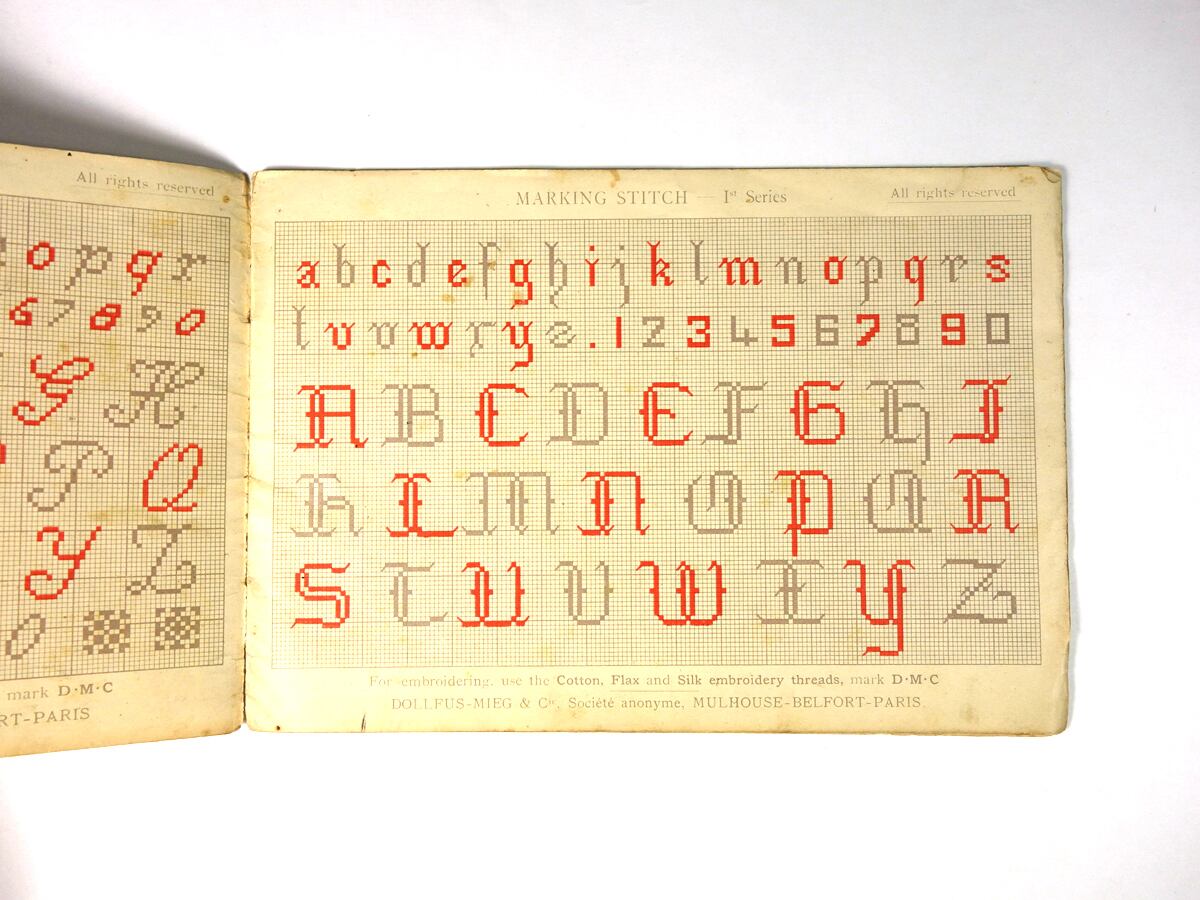 All rights reserved
o p q r
6 7 8 9 0
G H
P Q
Y Z
0
mark D·M·C
RT-PARIS
MARKING STITCH — Ist Series
All rights reserved
a b c d e f g h i j k l m n o p q r s
t u v w x y z . 1 2 3 4 5 6 7 8 9 0
A B C D E F G H I
K L M N O P Q R
S T U V W X Y Z
For embroidering, use the Cotton, Flax and Silk embroidery threads, mark D·M·C
DOLLFUS-MIEG & Cie, Société anonyme, MULHOUSE-BELFORT-PARIS.